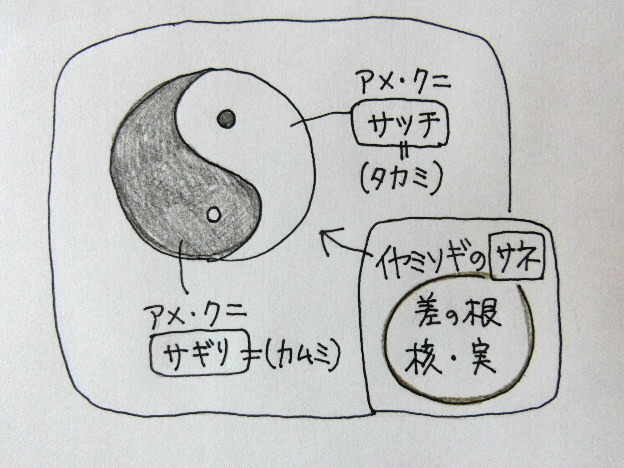 アメ・クニ
サッチ
=
(タカミ)
イヤミソギのサネ
差の根
核・実
アメ・クニ
サギリ=(カムミ)